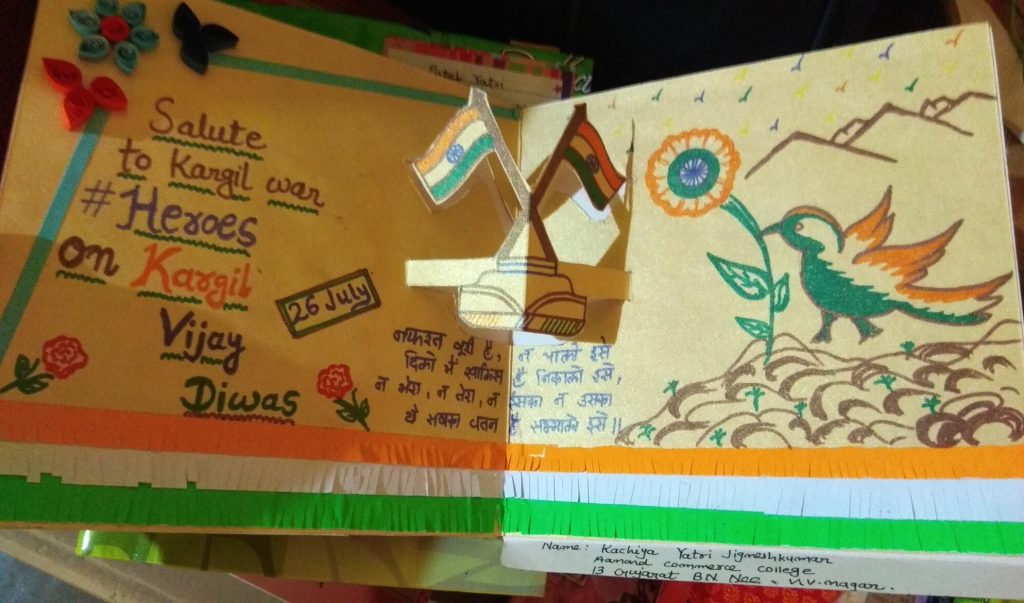 Patel Yatri
Salute
to Kargil war
#Heroes
on Kargil
Vijay
Diwas
26 July
नफरत बुरी है, न पालो इसे
दिलो मे खालिस है निकालो इसे,
न मेरा, न तेरा, न इसका न उसका
ये सबका वतन है सम्भालो इसे॥
Name: Kachiya Yatri Jigneshkumar
Aanand commerce college
13 Gujarat BN Ncc - V.V. nagar.